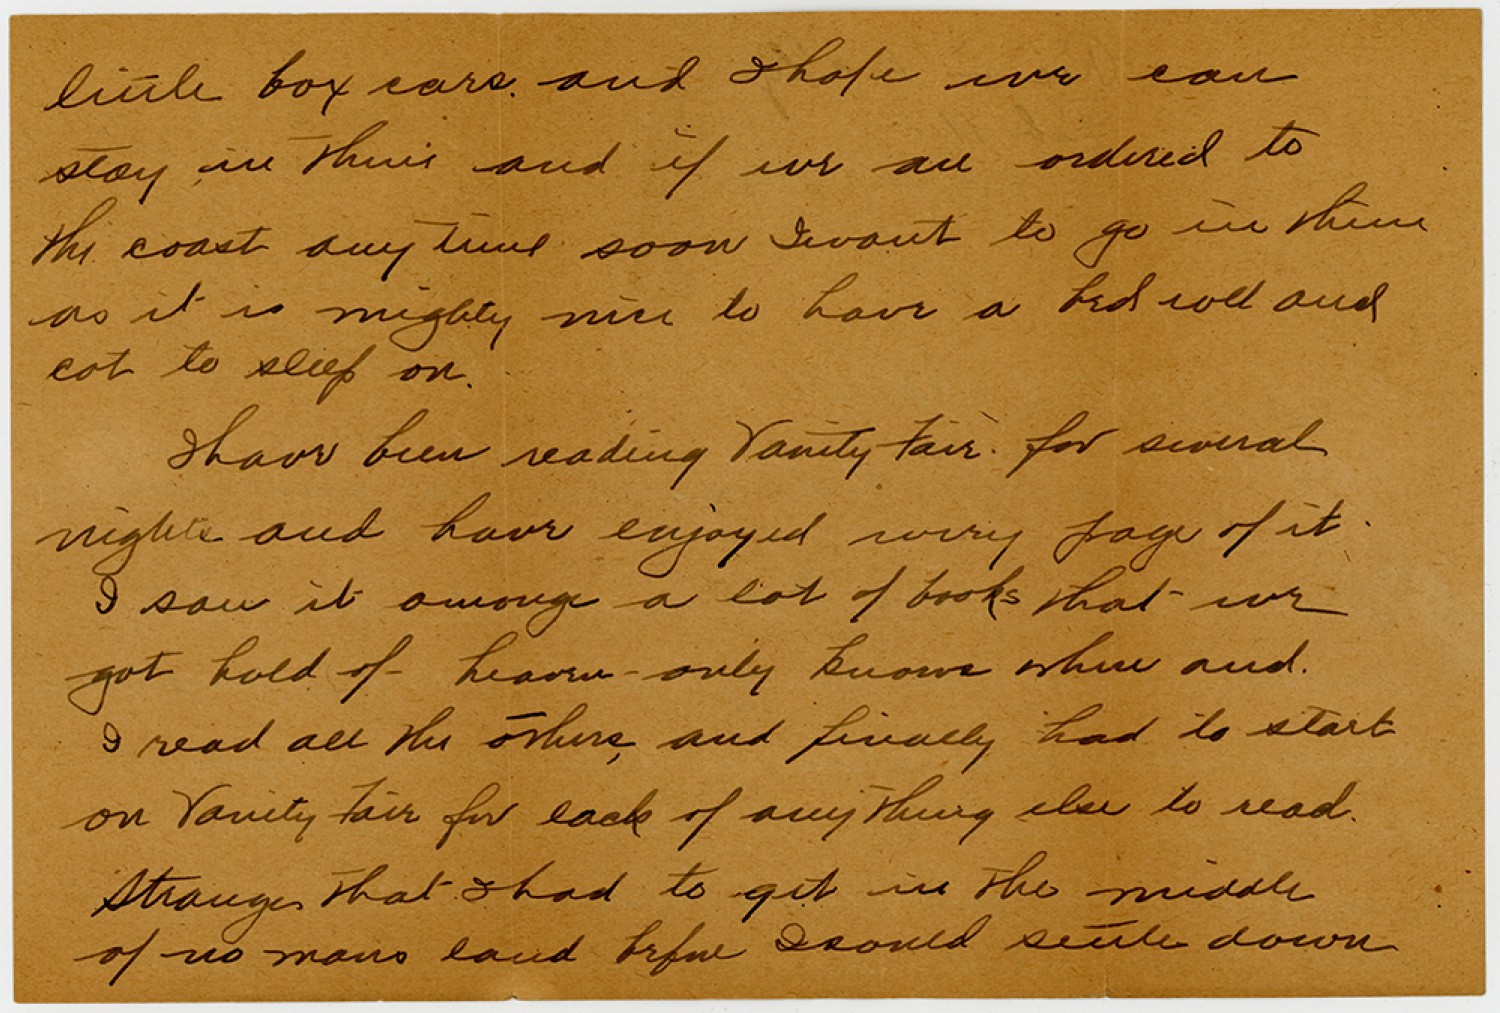 little box cars. and I hope we can
stay in them and if we are ordered to
the coast any time soon I want to go in them
as it is mighty nice to have a bed roll and
cot to sleep on.
I have been reading Vanity Fair. for several
nights and have enjoyed every page of it.
I saw it among a lot of books that we
got hold of - heaven - only knows where and.
I read all the others, and finally had to start
on Vanity Fair for lack of anything else to read.
Strange that I had to get in the middle
of no mans land before I could settle down